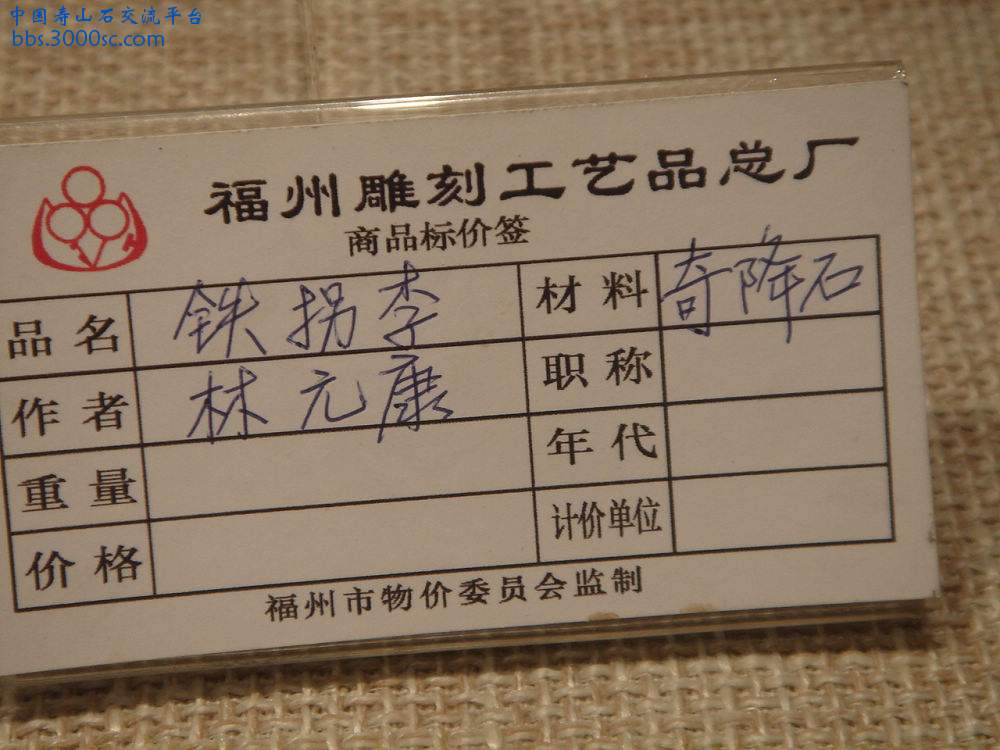 中国寿山石交流平台
bbs.3000sc.com
福州雕刻工艺品总厂
商品标价签
品名 铁拐李 材料 奇降石
作者 林元康 职称
重量 年代
价格 计价单位
福州市物价委员会监制